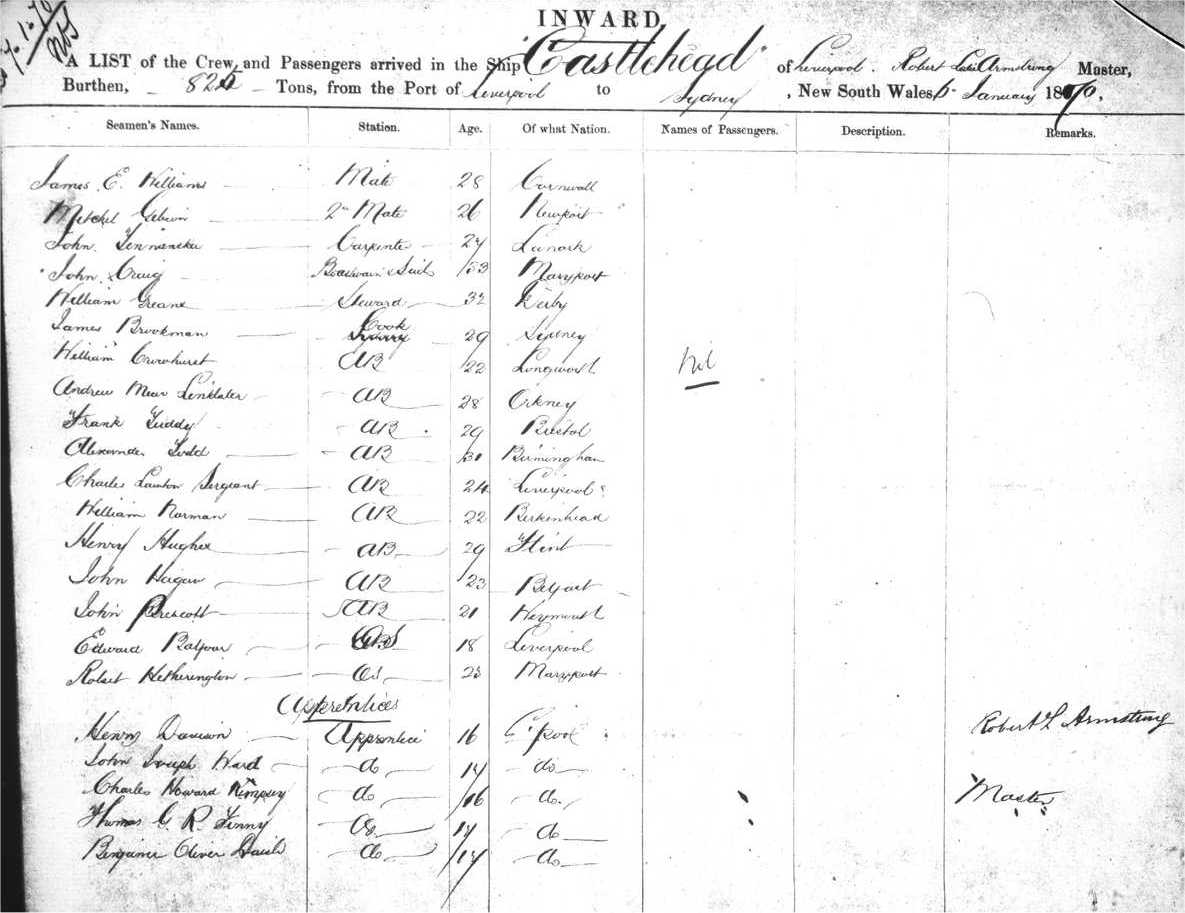 7.1.70
INWARD.
A LIST of the Crew and Passengers arrived in the Ship "Castlehead" of Liverpool. Robert Armstrong Master,
Burthen, 825 Tons, from the Port of Liverpool to Sydney, New South Wales, January 1870,
Seamen's Names. Station. Age. Of what Nation. Names of Passengers. Description. Remarks.
James E. Williams Mate 28 Cornwall
2nd Mate 26 Newport
John Carpenter Lanark
John Craig Boatswain & Sails 53 Maryport
William Greane Steward 32
James Brookman Cook 29 Sydney
William Crowhurst AB 22 Nil
Andrew Linklater AB 28 Orkney
Frank Tuddy AB 29 Bristol
Alexander Todd AB 31 Birmingham
Charles Lawton Sergeant AB 24 Liverpool
William Norman AB 22 Birkenhead
Henry Hughes AB 29 Flint
John Hagan AB 23 Belfast
John Prescott AB 21 Weymouth
Edward Balfour OS 18 Liverpool
Robert Hetherington Os 23 Maryport
Apprentices
Henry Davison Apprentice 16 L'pool
Robert L Armstrong
John Joseph Ward do 17 do
Charles Howard do 16 do
Master
Thomas G. R. Finny 17 do
Oliver do 17 do